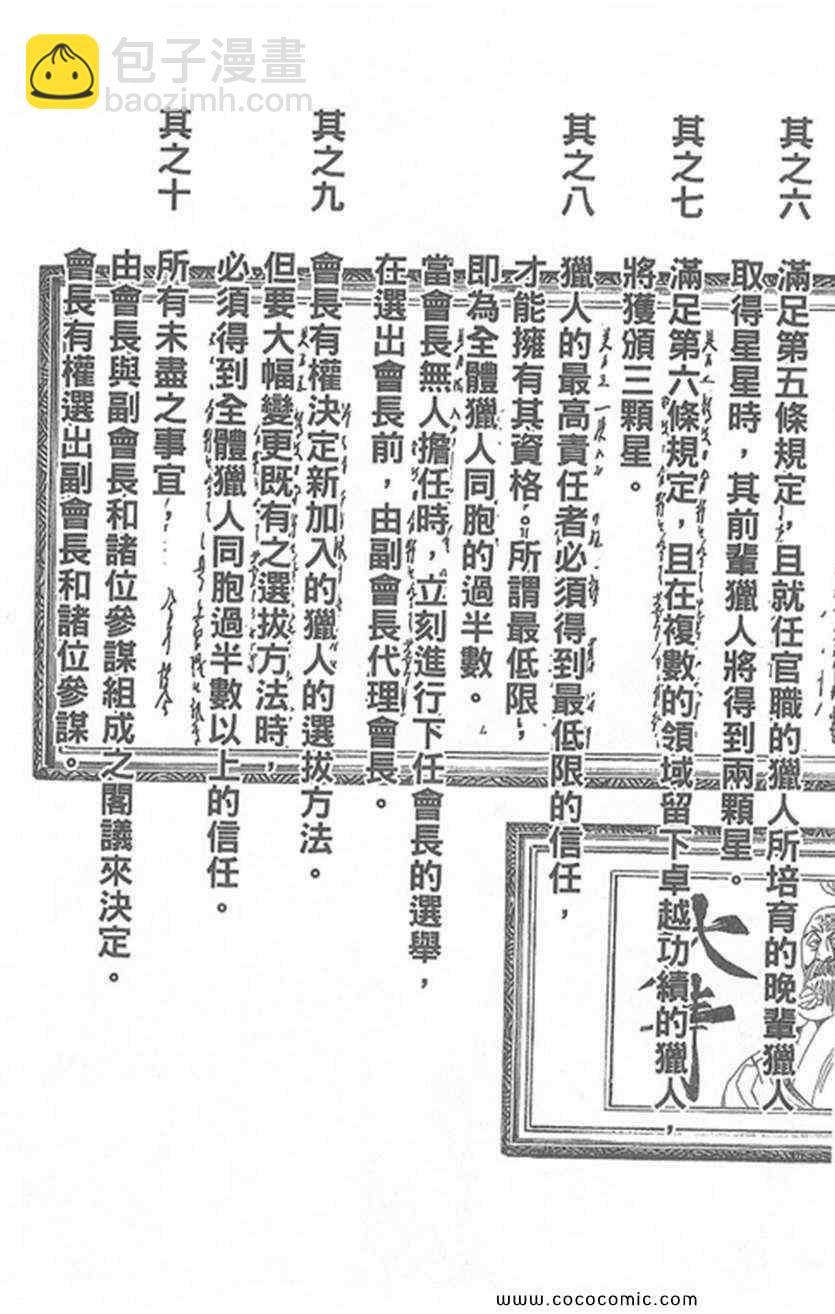 包子漫畫
baozimh.com
其之六
滿足第五條規定，且就任官職的獵人所培育的晚輩獵人
取得星星時，其前輩獵人將得到兩顆星。
其之七
滿足第六條規定，且在複數的領域留下卓越功績的獵人，
將獲頒三顆星。
其之八
獵人的最高責任者必須得到最低限的信任，
才能擁有其資格。所謂最低限，
即為全體獵人同胞的過半數。
當會長無人擔任時，立刻進行下任會長的選舉，
在選出會長前，由副會長代理會長。
其之九
會長有權決定新加入的獵人的選拔方法。
但要大幅變更既有之選拔方法時，
必須得到全體獵人同胞過半數以上的信任。
其之十
所有未盡之事宜
由會長與副會長和諸位參謀組成之閣議來決定。
會長有權選出副會長和諸位參謀。
www.cococomic.com